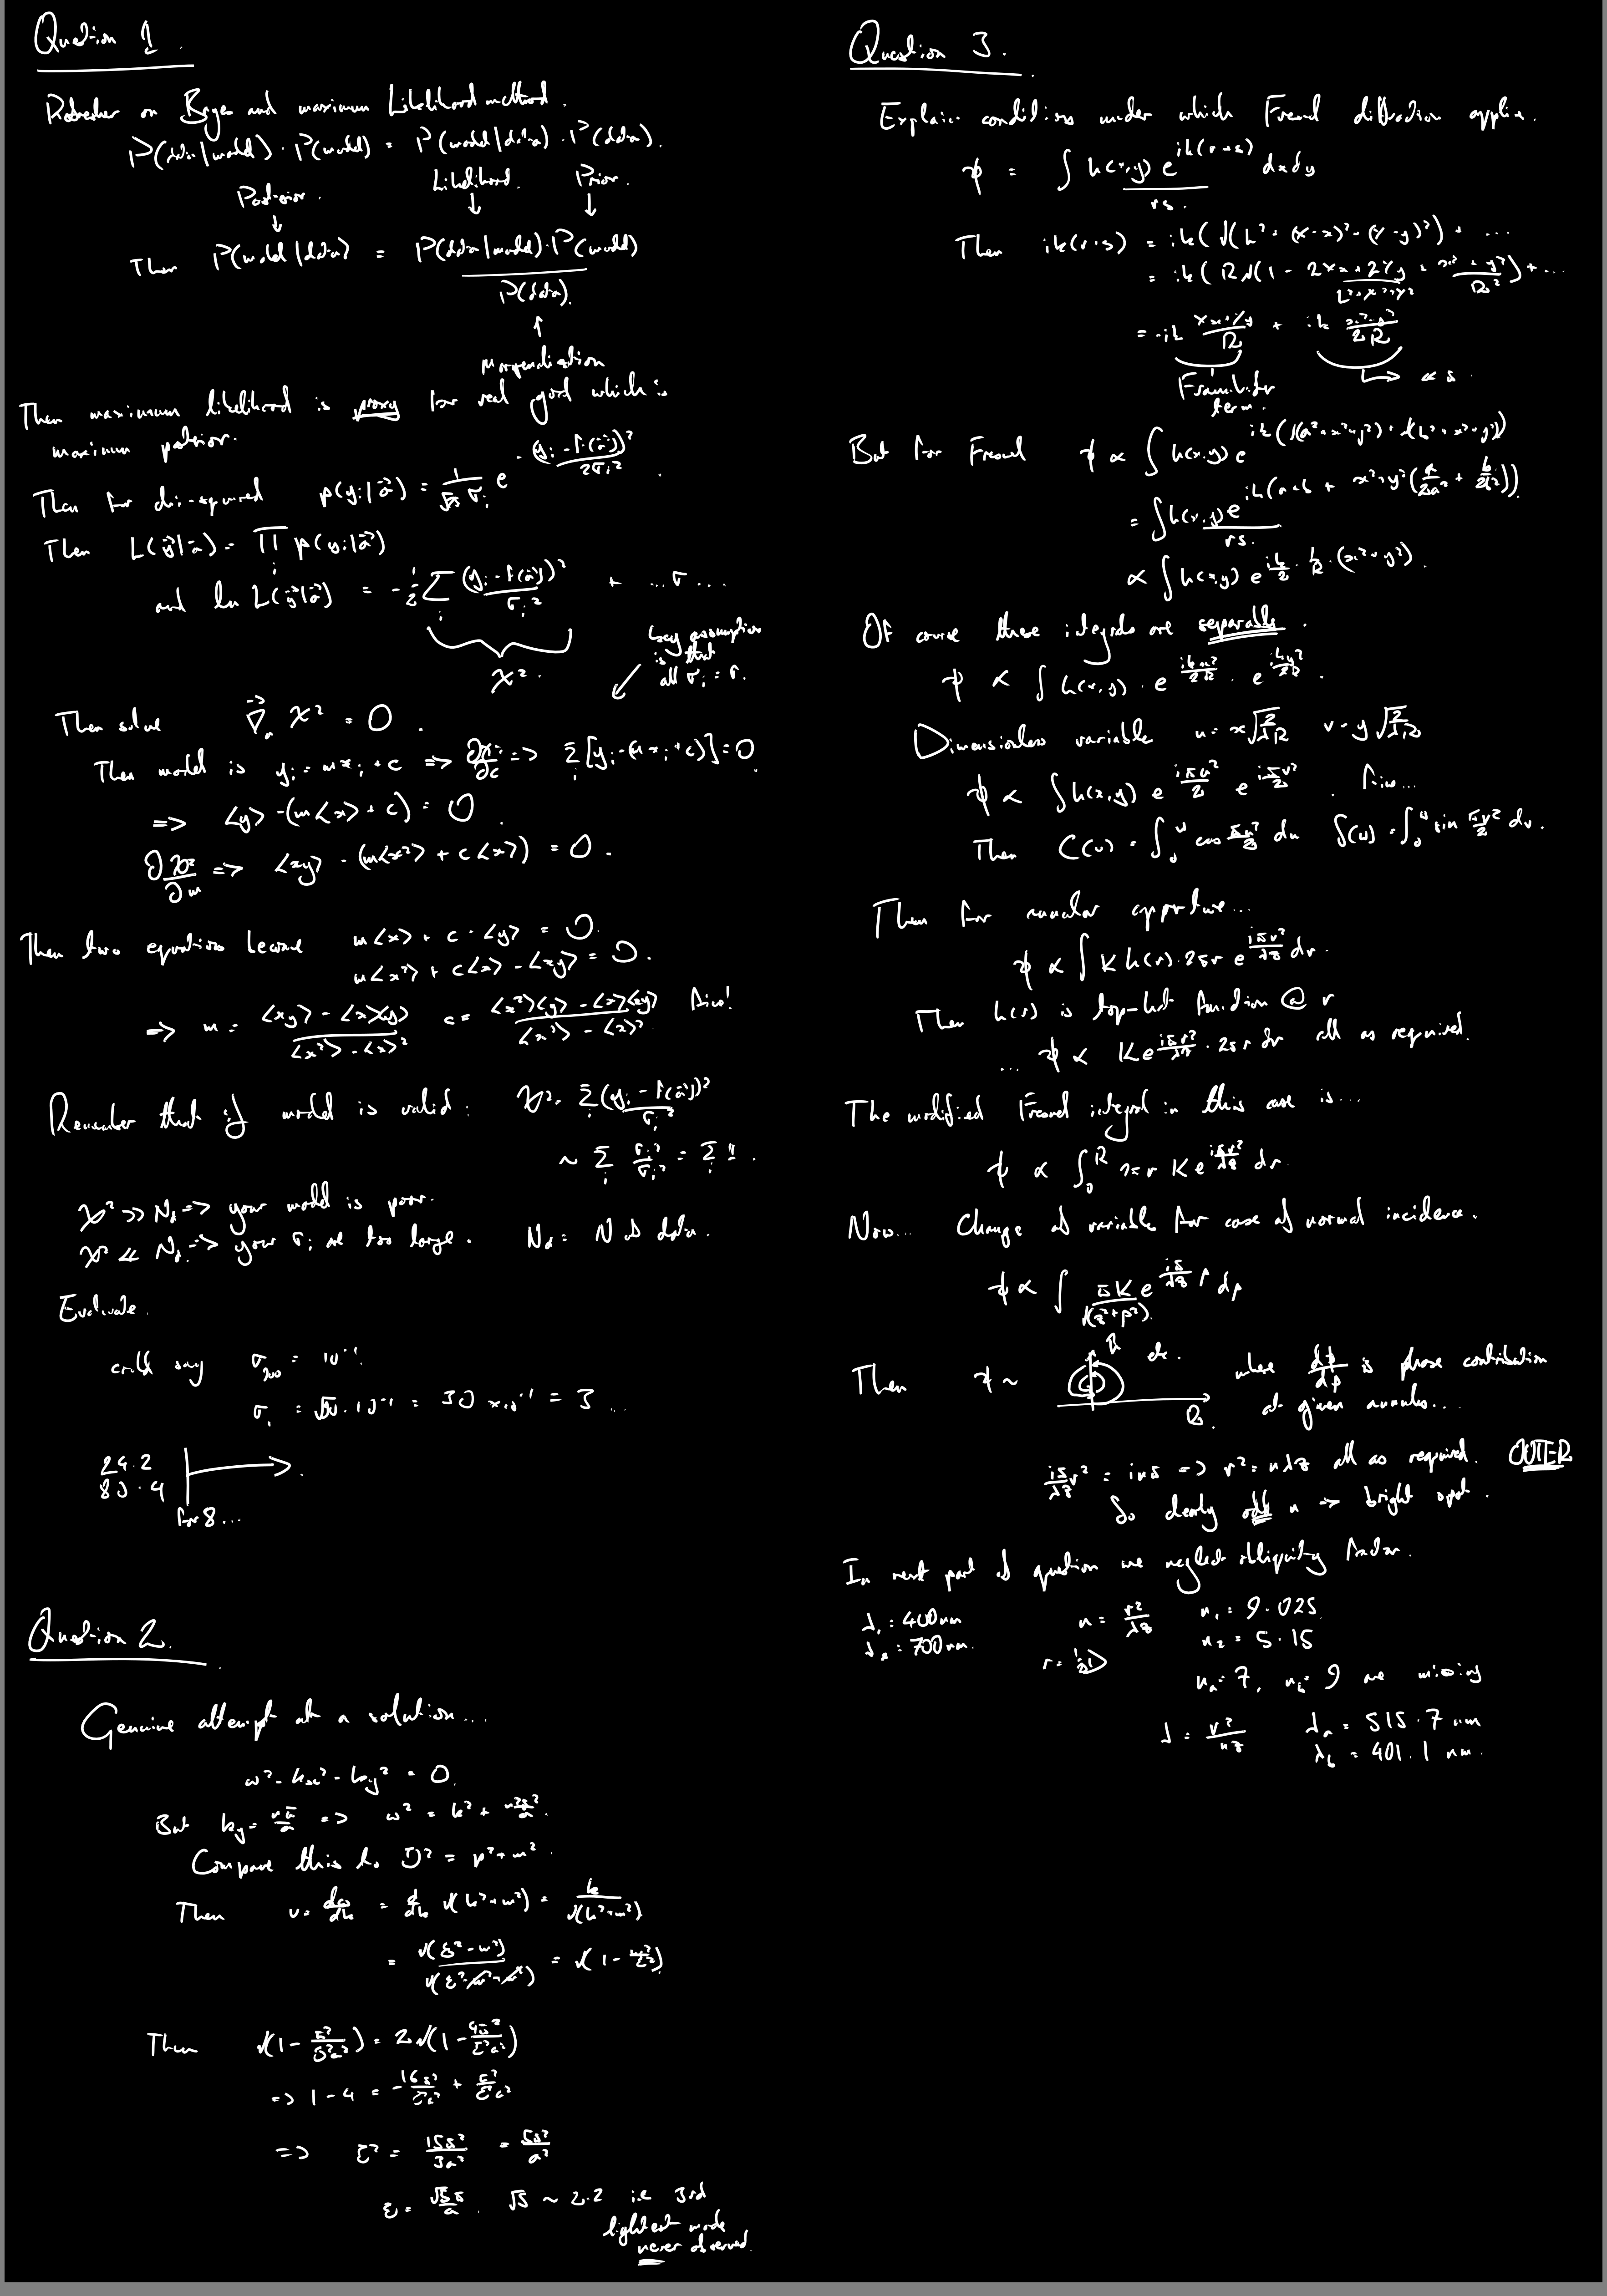 Question 1.
Refresher on Bayes and maximum Likelihood method.
P(data|model) · P(model) = P(model|data) · P(data).
Posterior. Likelihood. Prior.
Then P(model|data) = P(data|model)·P(model)
P(data).
Then maximum likelihood is proxy for real goal which is
maximum posterior.
Then for chi-squared p(yᵢ|a⃗) = 1/(√2π σᵢ) e^(-(yᵢ - f(a⃗))²/2σᵢ²).
Then L(y⃗|a⃗) = ∏ᵢ p(yᵢ|a⃗)
and ln L(y⃗|a⃗) = -½ Σᵢ (yᵢ - f(a⃗))²/σᵢ² + ...σ...
χ².
key assumption
is that
all σᵢ = σ.
Then solve ∇⃗ₐ χ² = 0.
Then model is yᵢ = mxᵢ + c => ∂χ²/∂c => Σᵢ [yᵢ - (mxᵢ + c)] = 0.
=> <y> - (m<x> + c) = 0.
∂χ²/∂m => <xy> - (m<x²> + c<x>) = 0.
Then two equations become m<x> + c - <y> = 0.
m<x²> + c<x> - <xy> = 0.
=> m = (<xy> - <x><y>)/(<x²> - <x>²) c = (<x²><y> - <x><xy>)/(<x²> - <x>²). fine!
Remember that if model is valid: χ² = Σᵢ (yᵢ - f(a⃗))²/σᵢ²
~ Σᵢ σᵢ²/σᵢ² = Σᵢ 1.
χ² >> N_d => your model is poor.
χ² << N_d => your σᵢ are too large. N_d = N of data.
Evaluate.
could say σ₂₀₀ = 10⁻¹.
= 30 × 10⁻¹ = 3 ...
24.2
80.4
for 8...
Question 2.
Genuine attempt at a solution...
ω² - kₓ² - k_y² = 0.
But k_y = nπ/a => ω² = k² + n²π²/a².
Compare this to E² = p² + m².
Then v = dω/dk = d/dk √(k² + m²) = k/√(k² + m²)
= √(E² - m²)/√(E² - m² + m²) = √(1 - m²/E²)
Then √(1 - π²/E²a²) = 2√(1 - 4π²/E²a²)
=> 1 - 4 = -16π²/E²a² + π²/E²a²
=> E² = 15π²/3a² = 5π²/a²
E = √5π/a. √5 ~ 2.2 i.e 3rd
lightest mode
never observed.
Question 3.
Explain conditions under which Fresnel diffraction applies.
ψ = ∫ h(x,y) e^(ik(r+s))/rs. dxdy
Then ik(r+s) = ik(√(L² + (X-x)² + (Y-y)²) + ...
= ik(R√(1 - (2Xx + 2Yy)/(L²+X²+Y²) + (x²+y²)/R²) + ...
= -ik (Xx+Yy)/R + ik (x²+y²)/2R
Fraunhofer
term.
But for Fresnel ψ ∝ ∫ h(x,y) e^(ik(√(a²+x²+y²) + √(b²+x²+y²)))
= ∫ h(x,y) e^(ik(a+b + x²+y²(a/2a² + b/2b²)))/rs.
∝ ∫ h(x,y) e^(ik/2 · 1/R · (x²+y²)).
Of course these integrals are separable.
ψ ∝ ∫ h(x,y) · e^(ikx²/2R) · e^(iky²/2R).
Dimensionless variable u = x√(2/λR) v = y√(2/λR)
ψ ∝ ∫ h(x,y) e^(iπu²/2) e^(iπv²/2). fine...
Then C(w) = ∫₀ʷ cos πu²/2 du S(w) = ∫₀ʷ sin πv²/2 dv.
Then for annular apperture...
ψ ∝ ∫ K h(r) · 2πr e^(iπr²/λz) dr.
Then h(r) is top-hat function @ r
... ψ ∝ K e^(iπr²/λz) · 2πr dr all as required.
The modified Fresnel integral in this case is...
ψ ∝ ∫₀ᴿ 2πr K e^(iπr²/λz) dr.
Now... Change of variable for case of normal incidence.
ψ ∝ ∫ πK/√(z²+ρ²) e^(iπ/λz ρ) dρ
Then ψ ~ etc. where dφ/dρ is phase contribution
at given annulus...
iπ/λz r² = inπ => r² = nλz all as required. OUTER
So clearly odd n => bright spot.
In next part of question we neglect obliquity factor.
λ₁ = 400nm n = r²/λz n₁ = 9.025.
λ₂ = 700nm. r = ½D n₂ = 5.15
nₐ = 7, n_b = 9 are missing
λ = r²/nz λₐ = 515.7 nm
λ_b = 401.1 nm.